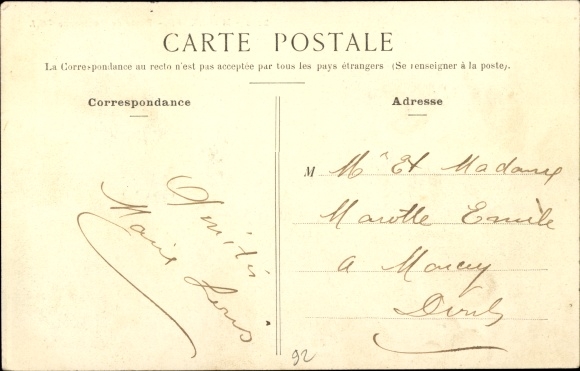 CARTE POSTALE
La Correspondance au recto n'est pas acceptée par tous les pays étrangers (Se renseigner à la poste).
Correspondance
Amitiés
Marie Louis
Adresse
M Mr Et Madame
Marotte Emile
a Morey
92